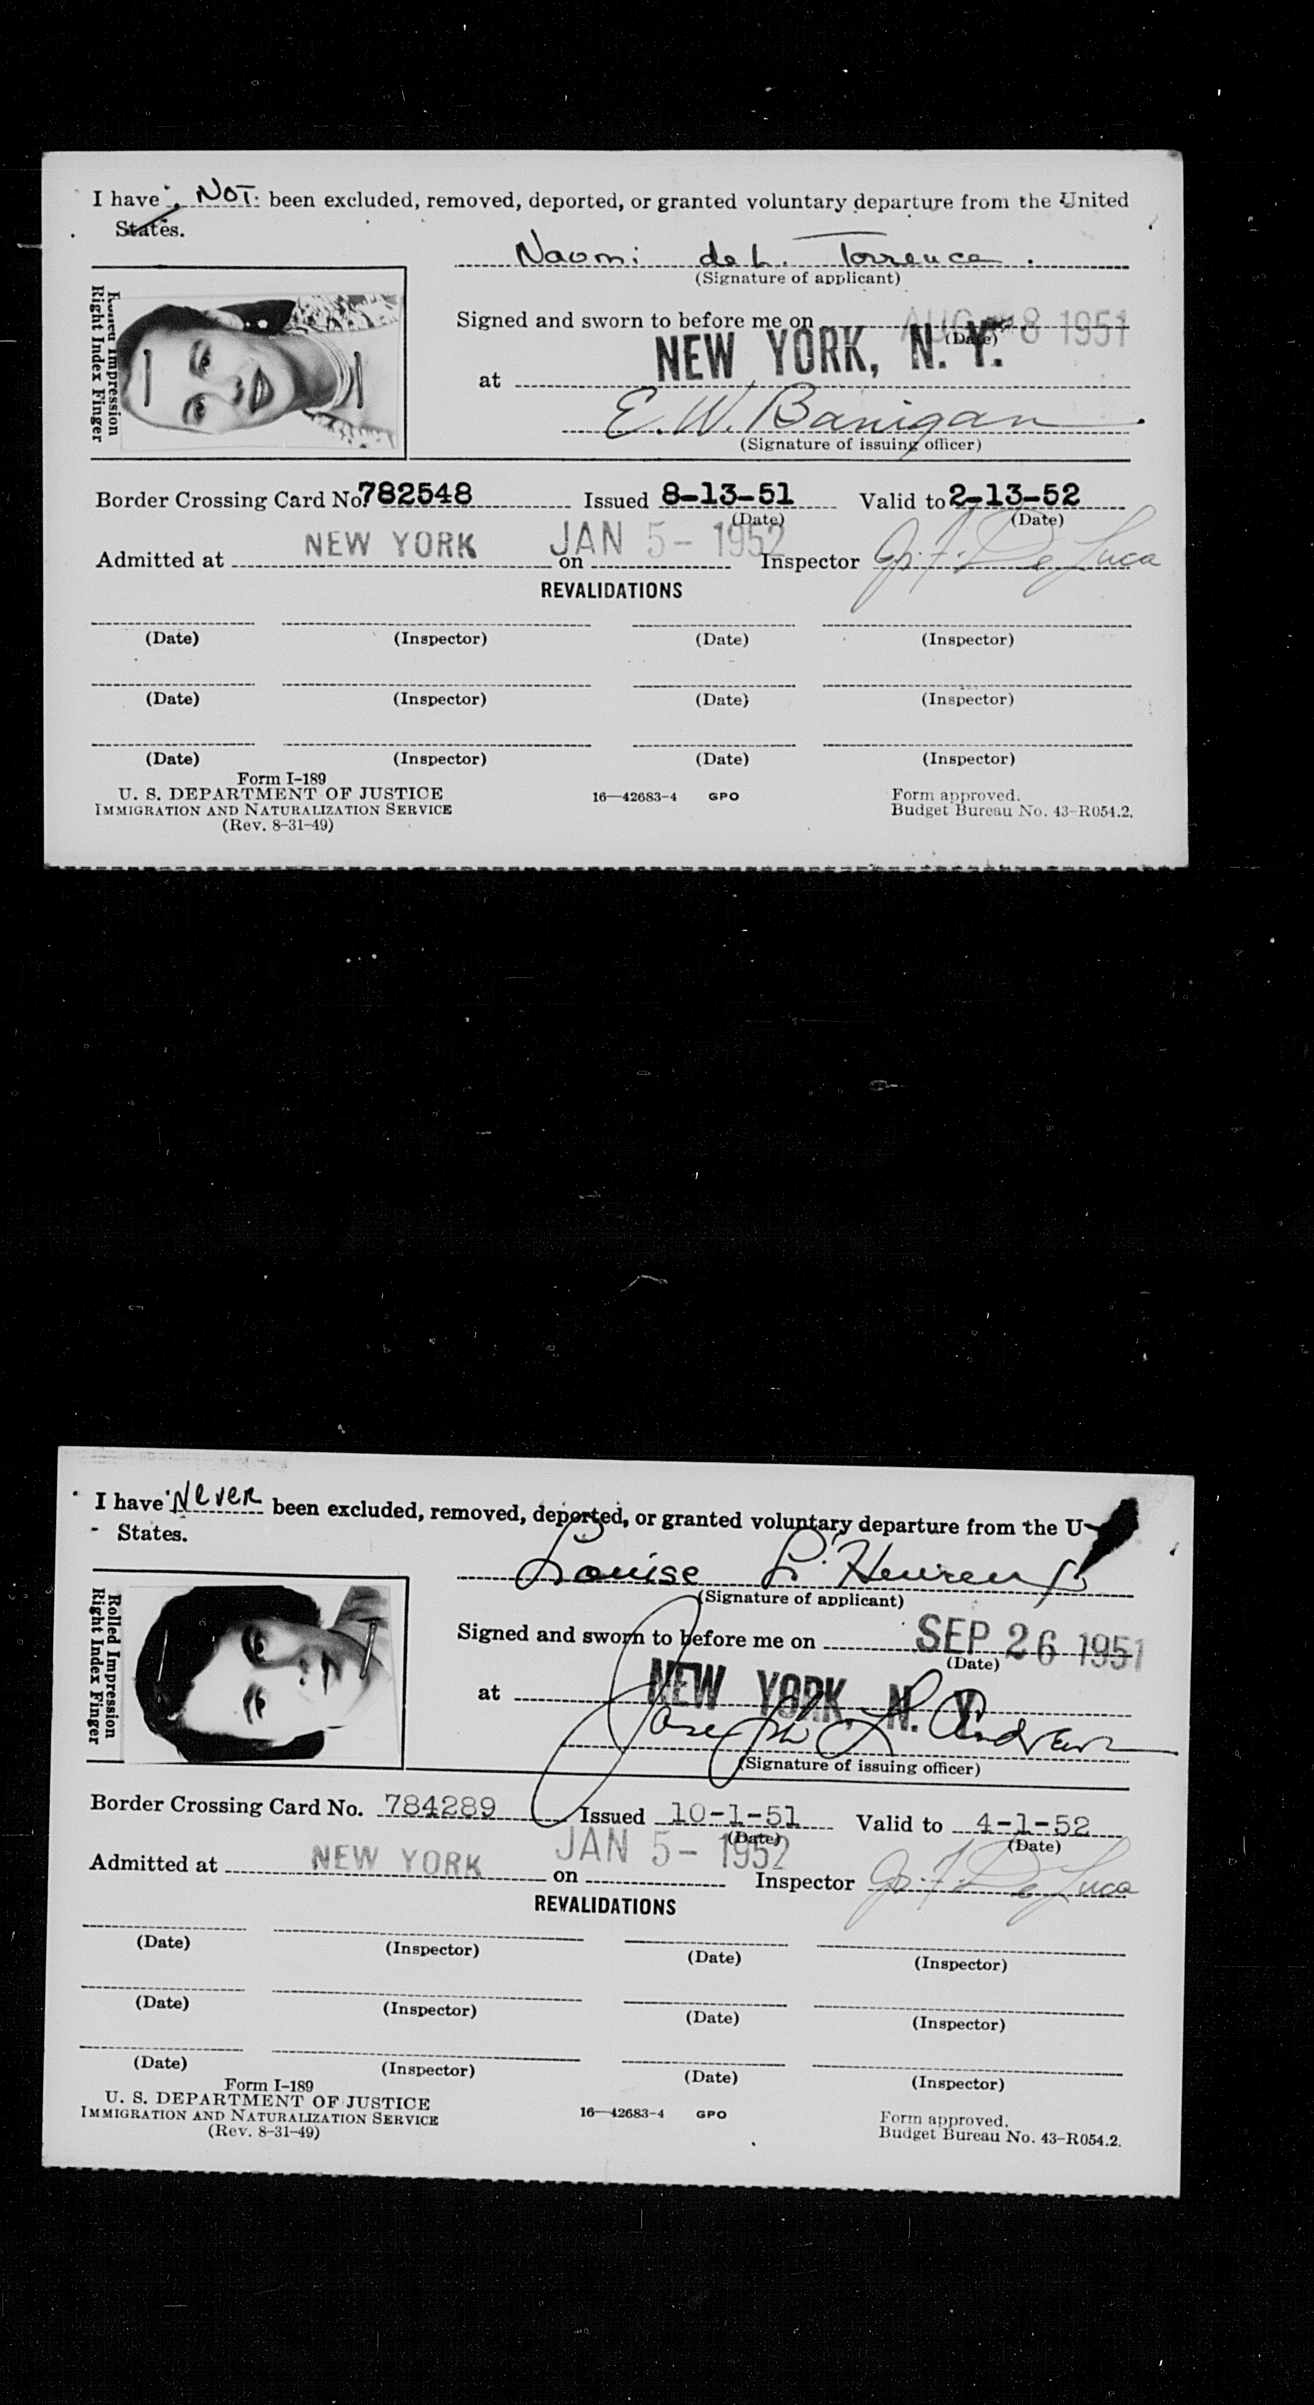 I have NOT been excluded, removed, deported, or granted voluntary departure from the United
States.
Naomi de L. Torrence.
(Signature of applicant)
Rolled Impression
Right Index Finger
Signed and sworn to before me on AUG 8 1951
(Date)
at NEW YORK, N. Y.
E. W. Banigan
(Signature of issuing officer)
Border Crossing Card No. 782548 Issued 8-13-51 Valid to 2-13-52
(Date) (Date)
Admitted at NEW YORK on JAN 5- 1952 Inspector De Luca
REVALIDATIONS
(Date) (Inspector) (Date) (Inspector)
(Date) (Inspector) (Date) (Inspector)
(Date) (Inspector) (Date) (Inspector)
Form I-189
U. S. DEPARTMENT OF JUSTICE 16—42683-4 GPO Form approved.
IMMIGRATION AND NATURALIZATION SERVICE Budget Bureau No. 43-R054.2.
(Rev. 8-31-49)
I have Never been excluded, removed, deported, or granted voluntary departure from the U
States.
Louise L'Heureux
(Signature of applicant)
Rolled Impression
Right Index Finger
Signed and sworn to before me on SEP 26 1951
(Date)
at NEW YORK, N. Y.
Joseph L Andrews
(Signature of issuing officer)
Border Crossing Card No. 784289 Issued 10-1-51 Valid to 4-1-52
(Date) (Date)
Admitted at NEW YORK on JAN 5- 1952 Inspector De Luca
REVALIDATIONS
(Date) (Inspector) (Date) (Inspector)
(Date) (Inspector) (Date) (Inspector)
(Date) (Inspector) (Date) (Inspector)
Form I-189
U. S. DEPARTMENT OF JUSTICE 16—42683-4 GPO Form approved.
IMMIGRATION AND NATURALIZATION SERVICE Budget Bureau No. 43-R054.2.
(Rev. 8-31-49)